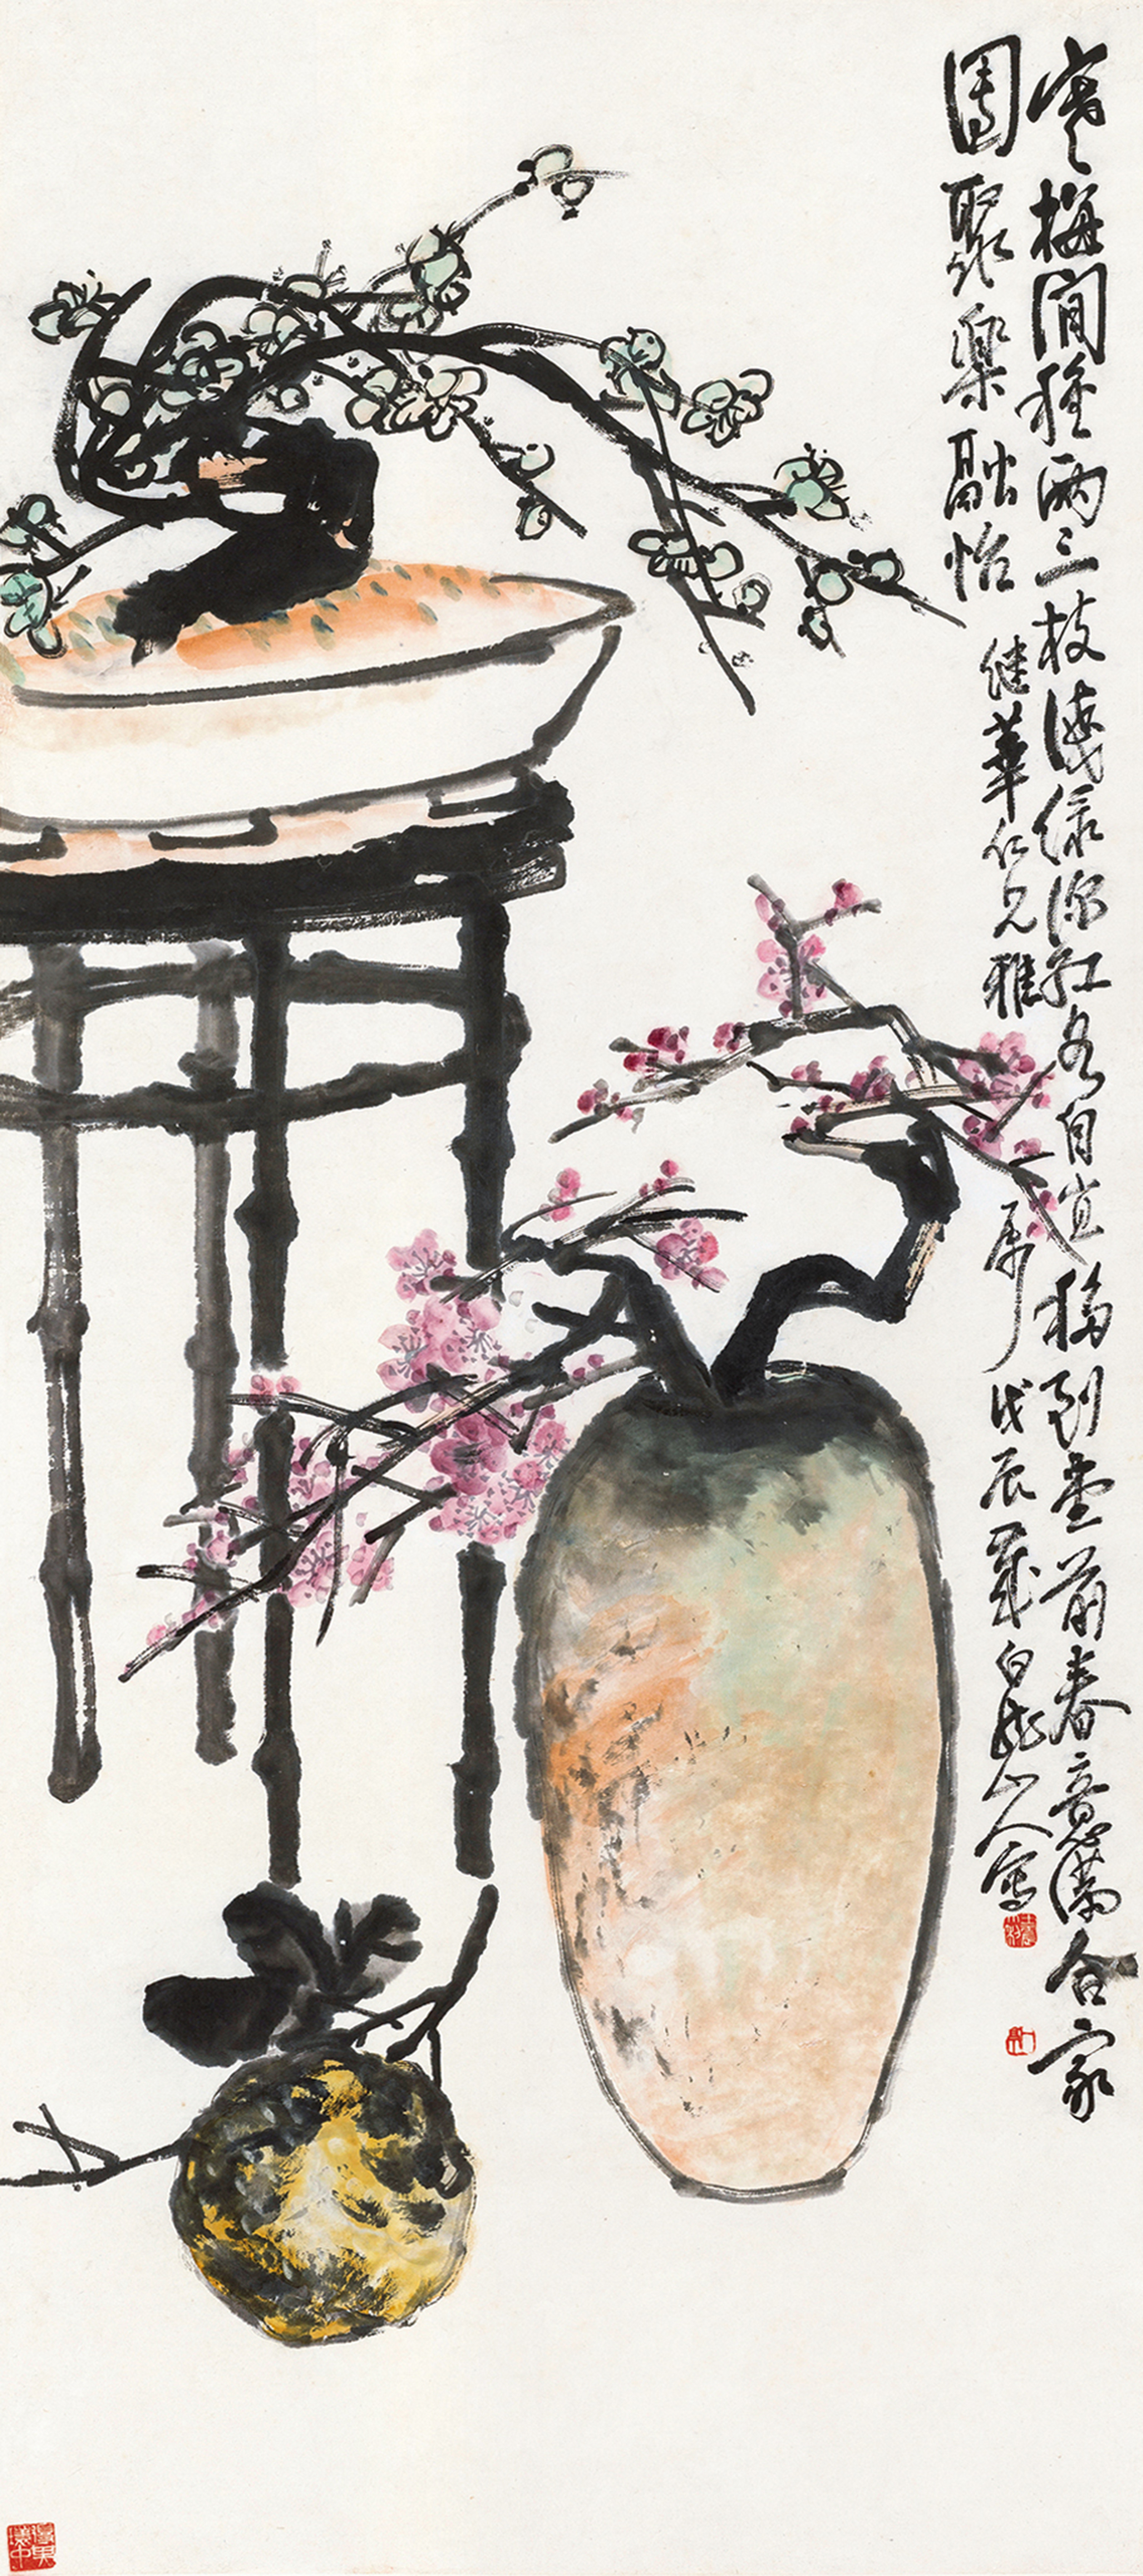 寒梅閒種兩三枝淺綠深紅各自宜移到堂前春意滿合家
團聚樂融怡
繼華仁兄雅屬戊辰歲白龍山人寫